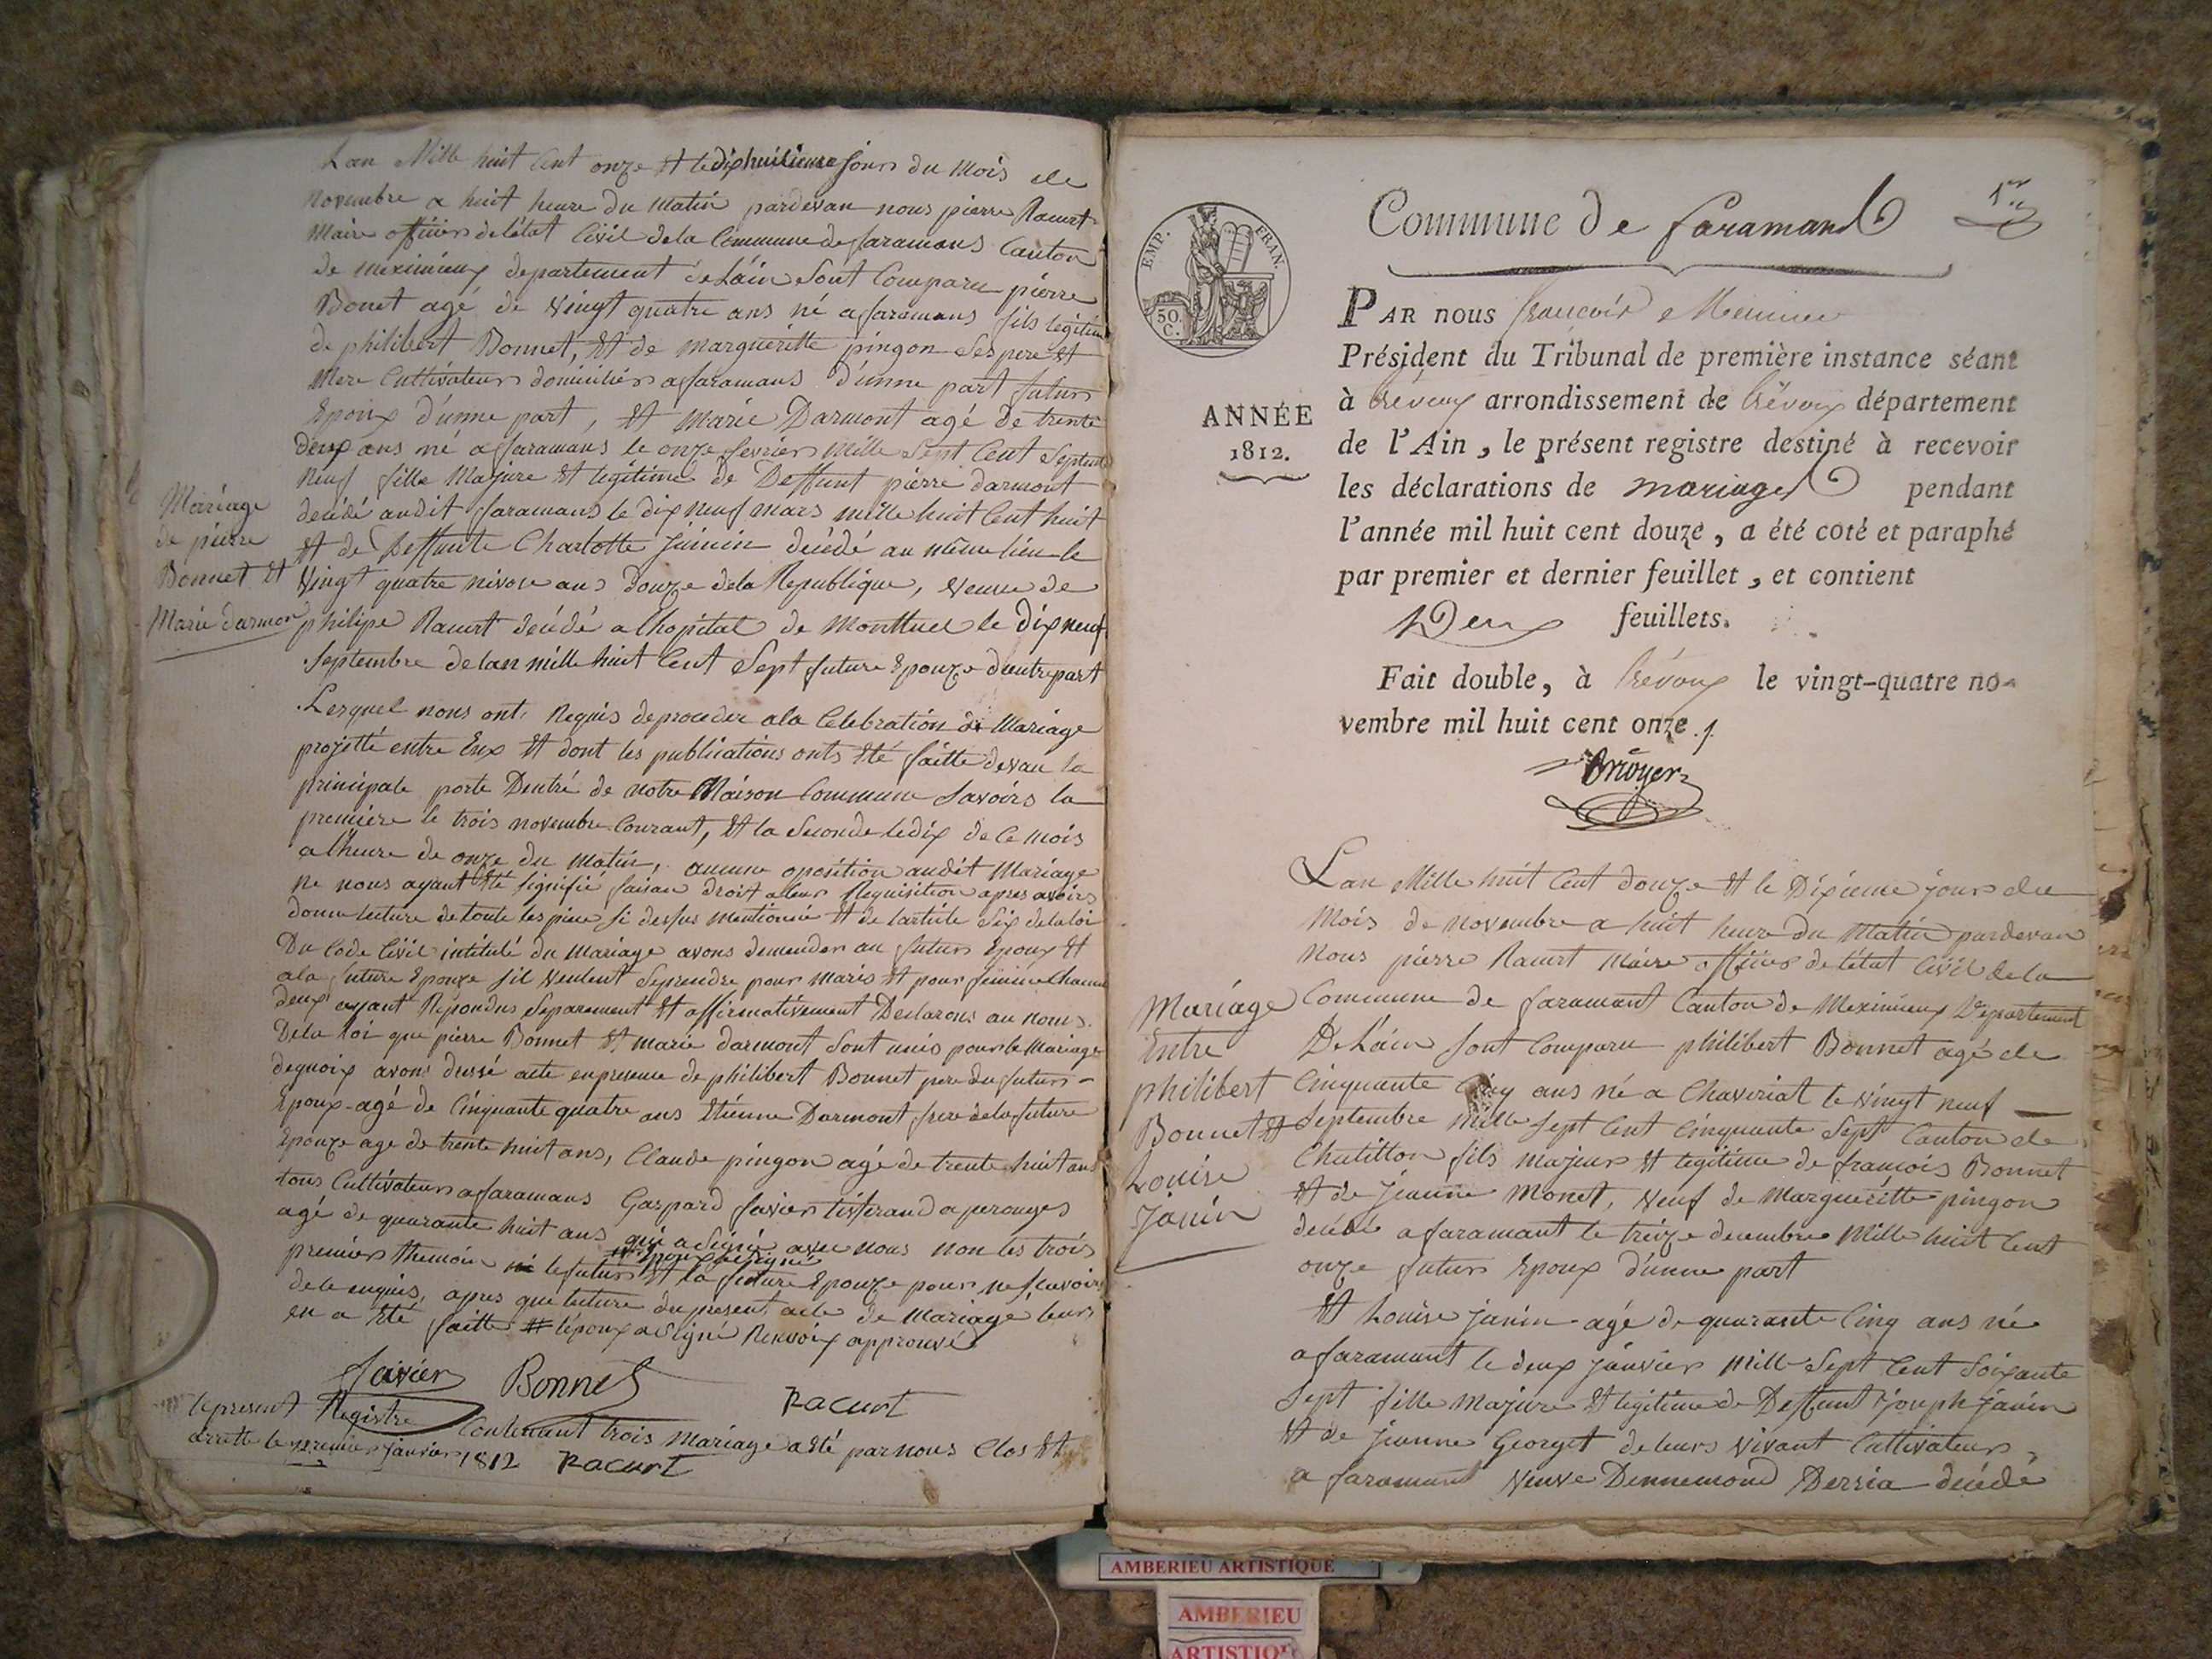 Lan Mille huit Cent onze Et le dixhuitieme jours du Mois de
Novembre a huit heure du Matin pardevan nous pierre Racurt
Maire officiers de létat Civil dela Commune de faramans Canton
de meximieux departement de Láin Sont Comparu pierre
Bonet agé de vingt quatre ans né a faramans fils legitime
de philibert Bonnet, Et de marguéritte pingon Ses pere Et
Mere Cultivateurs domiciliés a faramans d'unne part futurs
Epoux d'unne part, Et Marie Darmont agé de trente
deux ans né a faramans le onze fevrier Mille Sept Cent Septente
Neuf fille Majure Et legitime de Deffunt pierre darmont
décédé audit faramans le dix neuf mars mille huit Cent huit
Et de Deffunte Charlotte janin décédé au même lieu le
Vingt quatre nivose ans Douze dela Republique, veuve de
philipe Racurt décédé a lhopital de Montluel le dix neuf
Septembre de lan mille huit Cent Sept future Epouze dautre part
Mariage
de pierre
Bonnet Et
Marie darmon
Lesquel nous ont Requis de proceder ala Celebration du Mariage
projetté entre Eux Et dont les publications onts Eté faitte devan la
principale porte Dentré de notre Maison Commune Savoirs la
premiere le trois novembre Courant, Et la Seconde le dix de Ce mois
a lheure de onze du Matin, aucune oposition audit Mariage
ne nous ayant Eté Signifié faisan droit a leur Requisition apres avoirs
donne lecture de toute les piece Si dessus mentionné Et de larticle Six dela loi
Du Code Civil intitulé du Mariage avons demender au futurs Epoux Et
ala future Epouze Sil veulent Seprendre pour Maris Et pour femme Chacun
deux ayant Repondus Separement Et affirmativement Declarons au noms
Dela loi que pierre Bonnet Et marie darmont Sont unis pour le Mariage
dequoix avons dressé acte en presence de philibert Bonnet pere du futurs
Epoux agé de Cinquante quatre ans Etienne Darmont frere dela future
Epouze age de trente huit ans, Claude pingon agé de trente huit ans
tous Cultivateurs a faramans Gaspard favier tisserand a perouges
agé de quarante huit ans qui a Signé avec nous non les trois
premiers themoin le futurs Et la future Epouze pour ne Scavoirs
de le enquis, apres que lecture du present acte de Mariage leurs
en a Eté faitte # lépoux a Signé Renvoix approuvé
favier Bonnet Racurt
le present Registre Contenant trois Mariage a Eté par nous Clos Et
arretté le premier janvier 1812 Racurt
Commune de faramans
1er
EMP. FRAN.
50.
C.
ANNÉE
1812.
PAR nous françois Meunier
Président du Tribunal de première instance séant
à trévoux arrondissement de trévoux département
de l'Ain, le présent registre destiné à recevoir
les déclarations de mariages pendant
l'année mil huit cent douze, a été coté et paraphé
par premier et dernier feuillet, et contient
Deux feuillets.
Fait double, à trévoux le vingt-quatre no-
vembre mil huit cent onze.
Lan Mille huit Cent douze Et le Dixieme jours du
Mois de Novembre a huit heure du Matin pardevan
Nous pierre Racurt Maire officiers de létat Civil dela
Commune de faramant Canton de Meximieux Departement
De Láin Sont Comparu philibert Bonnet agé de
Cinquante Cinq ans né a Chaveriat le vingt neuf
Septembre Mille Sept Cent Cinquante Sept Canton de
Chatillon fils majeur Et legitime de francois Bonnet
Et de Jeanne Monet, Veuf de Margueritte pingon
décédé a faramant le treize decembre Mille huit Cent
onze futurs Epoux d'unne part
Mariage
Entre
philibert
Bonnet Et
Louise
Janin
Et Louise janin agé de quarante Cinq ans né
a faramant le deux janvier Mille Sept Cent Soixante
Sept fille Majure Et legitime de Deffunt joseph janin
Et de jeanne Georget de leurs vivant Cultivateurs
a faramant Veuve Dennemond Derria décédé
AMBERIEU ARTISTIQUE
AMBERIEU
ARTISTIQUE